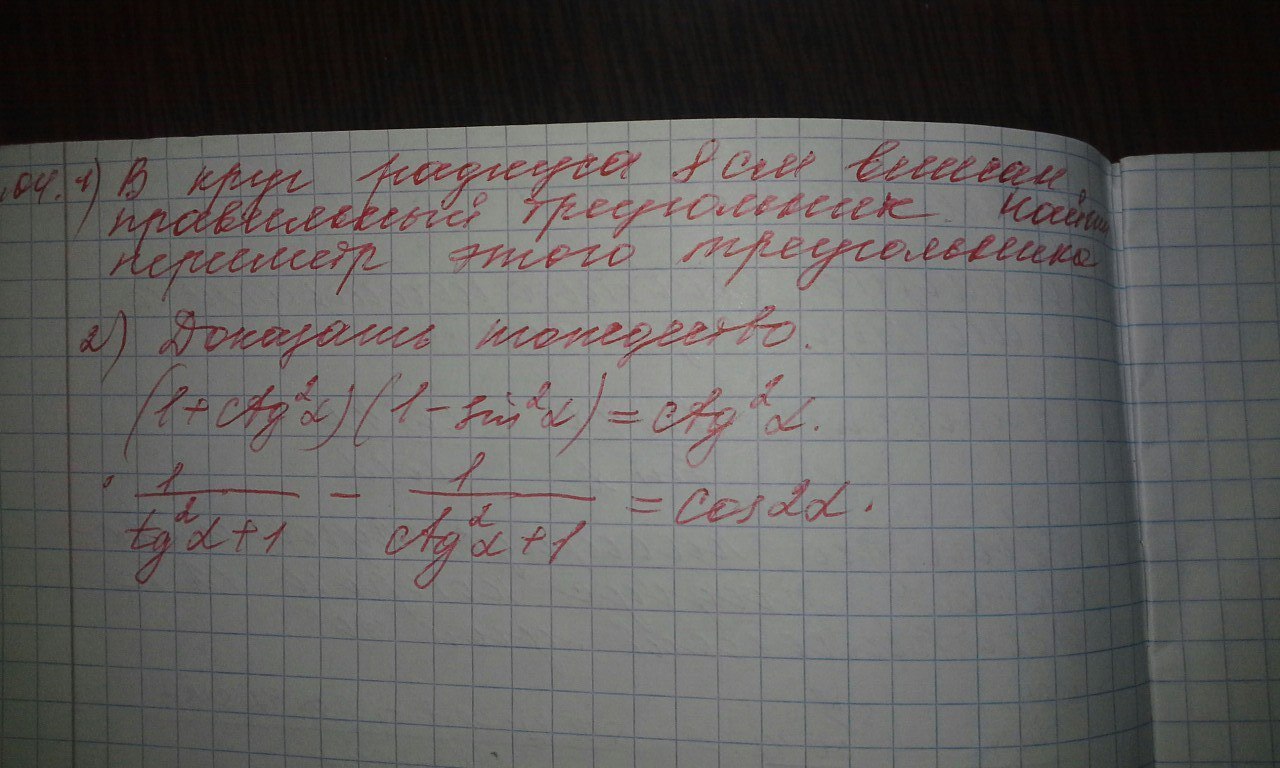 .04. 1) В круг радиуса 8 см вписан
правильный треугольник. Найти
периметр этого треугольника
2) Доказать тождество.
(1+ctg²α)(1-sin²α)=ctg²α.
1/(tg²α+1) - 1/(ctg²α+1) = cos2α.